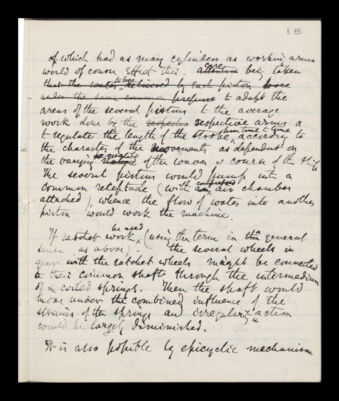 E 15
of which had as many cylinders as working arms
would of course effect this. care being taken
to adapt the
areas of the several pistons to the average
work done by the respective arms &
to regulate the length of the stroke, from time to time according to
the character of the movements as dependent on
the varying of the waves & course of the ship
The several pistons would pump into a
common receptacle (with air chamber
attached), whence the flow of water into another
piston would work the machine.
If ratchet work be used, (using the term in the general
sense as above) - the several wheels in
gear with the ratchet wheels might be connected
to their common shaft through the intermedium
of coiled springs. Then the shaft would
move under the combined influence of the
strains of the springs and irregularity in action
would be largely diminished.
It is also possible by epicyclic mechanism